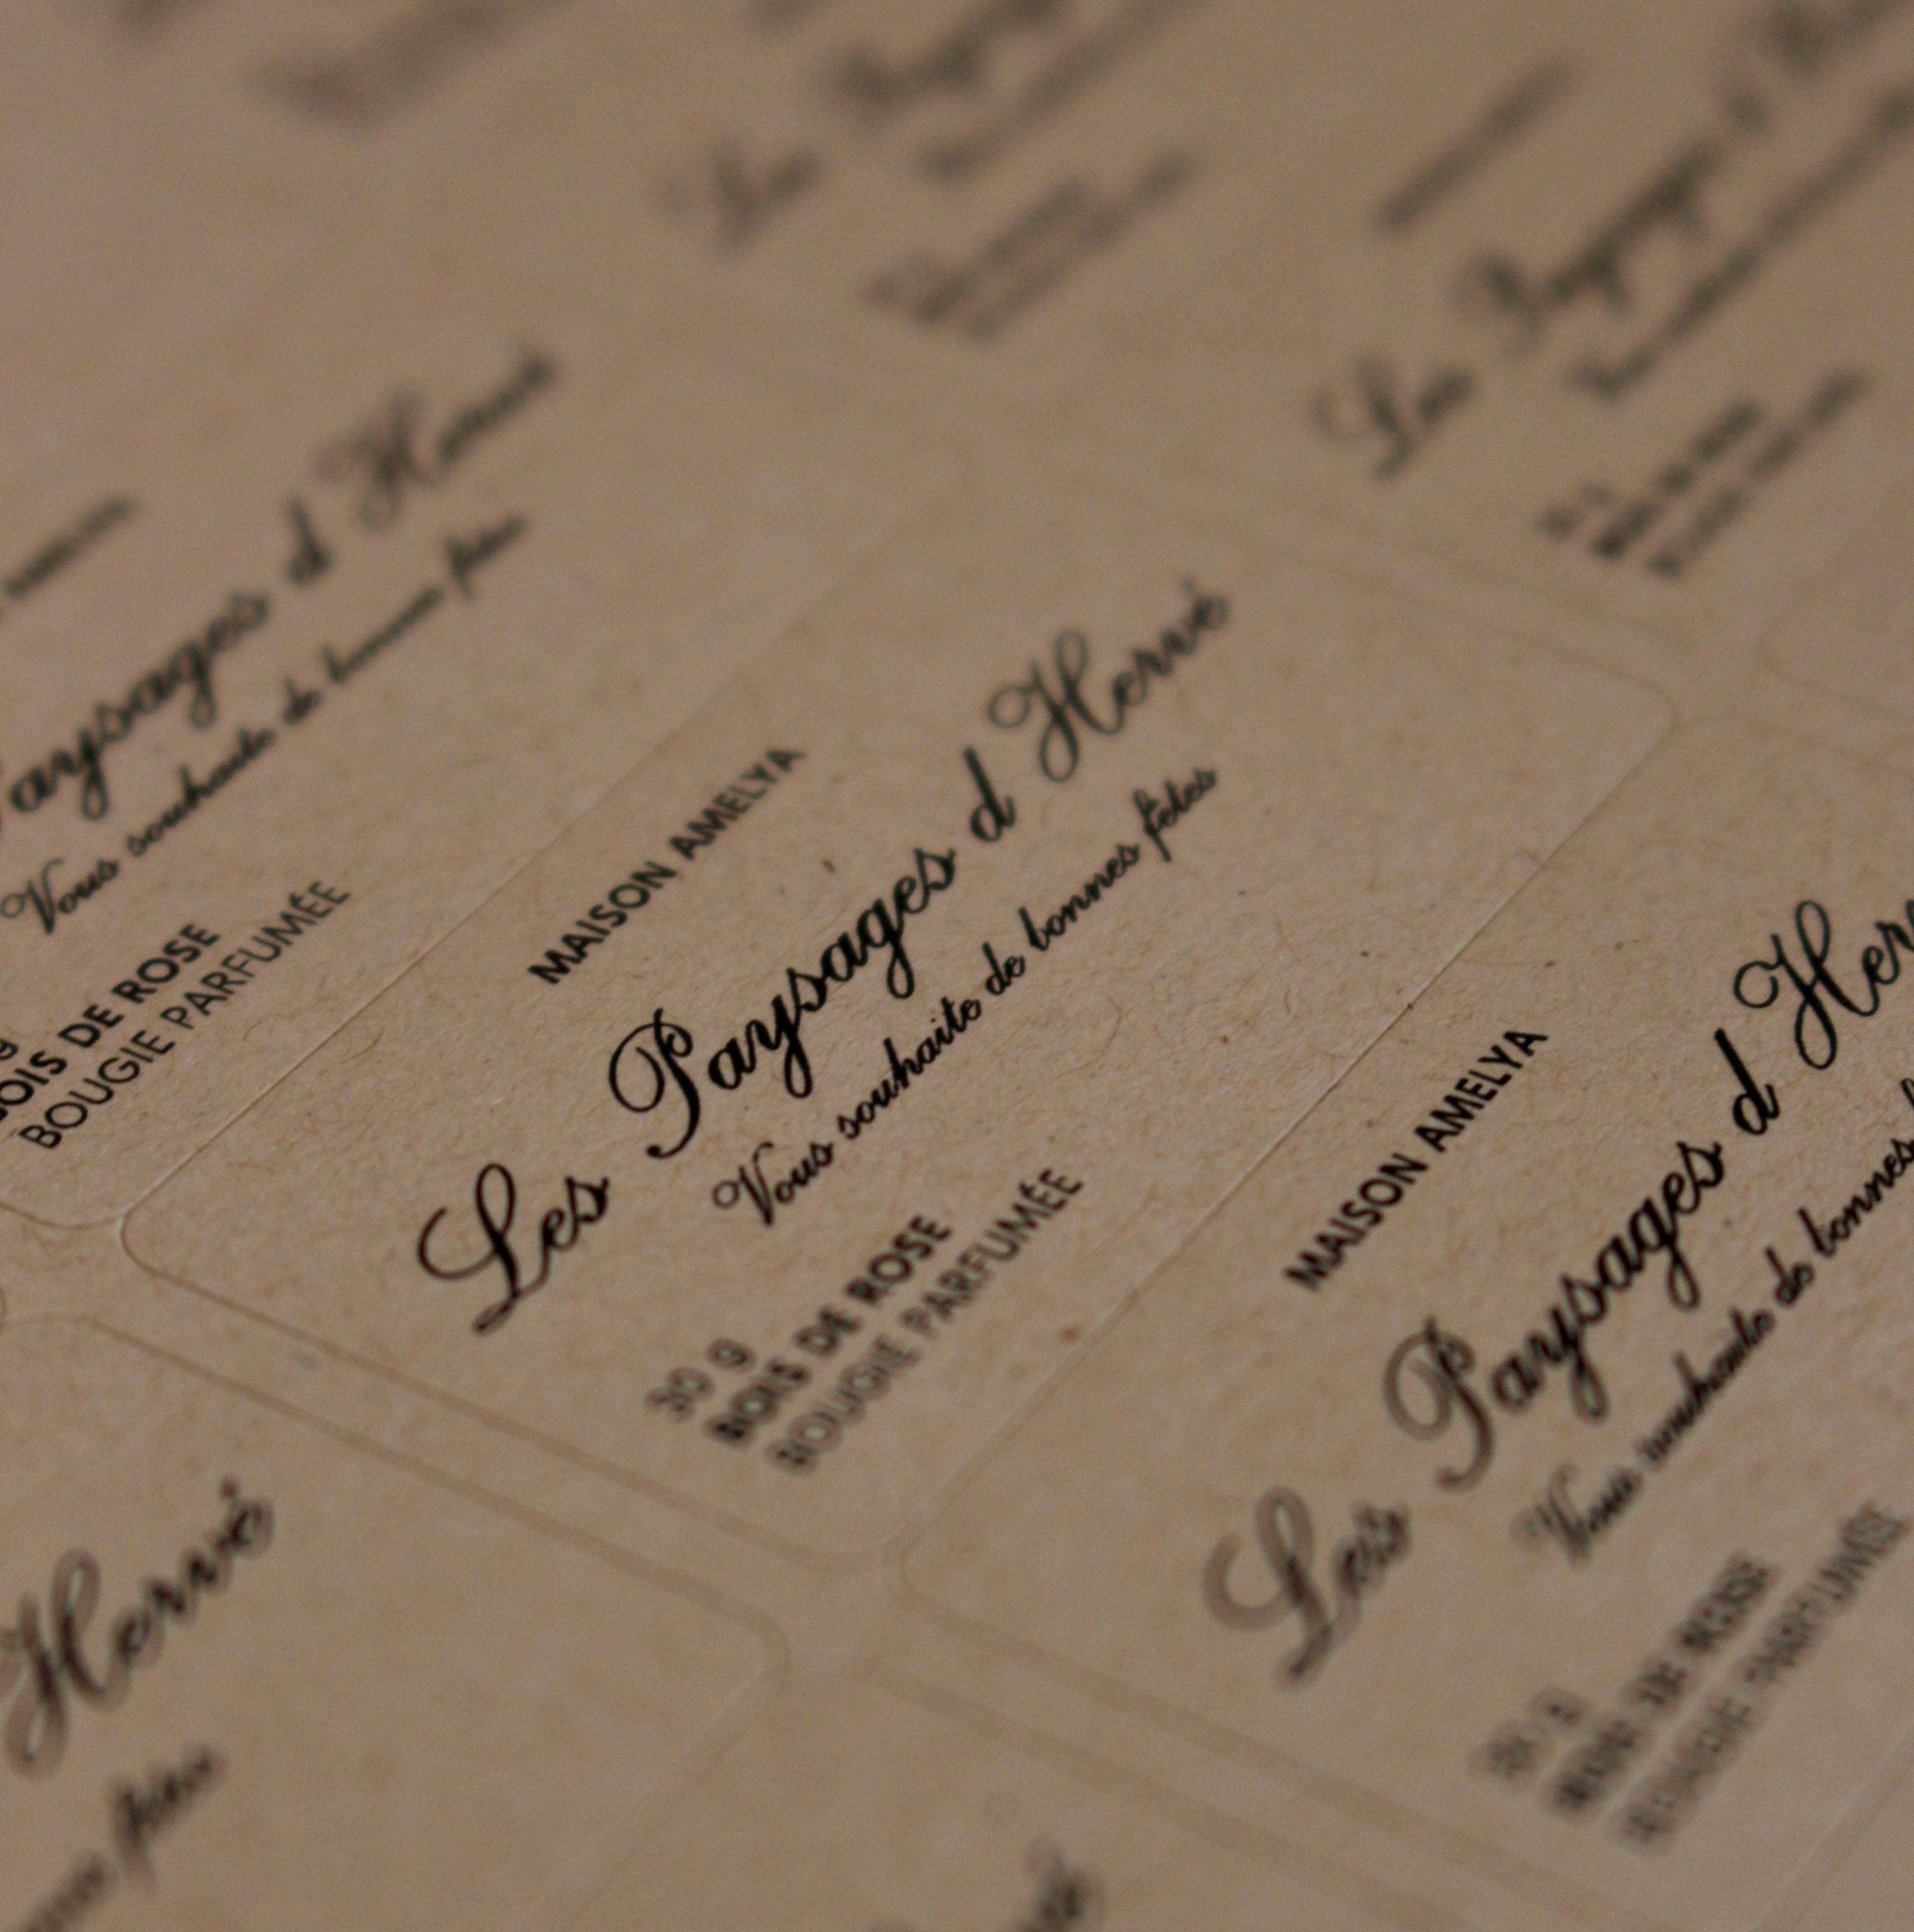 Paysages d Hervé
Vous souhaite de bonnes fêtes
BOIS DE ROSE
BOUGIE PARFUMÉE
MAISON AMELYA
Les Paysages d Hervé
Vous souhaite de bonnes fêtes
30 g
BOIS DE ROSE
BOUGIE PARFUMÉE
MAISON AMELYA
Les Paysages d Her
Vous souhaite de bonnes
30 g
BOIS DE ROSE
BOUGIE PARFUMÉE
Les Paysages d
Hervé
fêtes